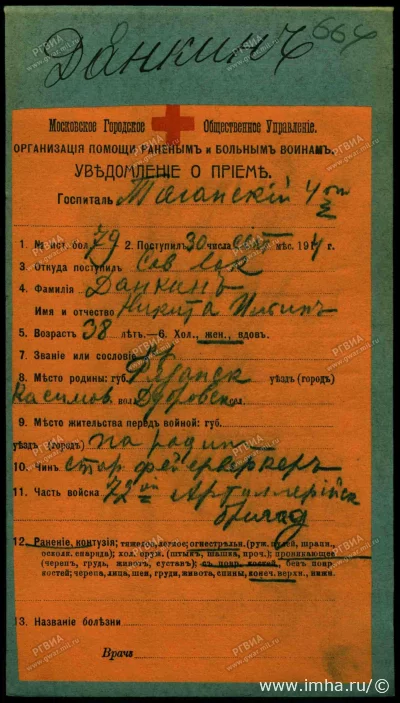 Данкинъ 664
Московское Городское Общественное Управленіе.
ОРГАНИЗАЦІЯ ПОМОЩИ РАНЕНЫМЪ и БОЛЬНЫМЪ ВОИНАМЪ.
УВѢДОМЛЕНІЕ О ПРІЕМѢ.
Госпиталь Таганскій 4
1. № ист. бол. 79 2. Поступилъ 30 числа сент мѣс. 1914 г.
3. Откуда поступилъ Сав вок
4. Фамилія Данкинъ
Имя и отчество Никита
5. Возрастъ 38 лѣтъ.—6. Хол., жен., вдов.
7. Званіе или сословіе кр
8. Мѣсто родины: губ. Рязанск уѣздъ (городъ)
Касимов вол. Дубровск ел.
9. Мѣсто жительства передъ войной: губ.
уѣздъ (городъ) на родинѣ
10. Чинъ стар фейерверкеръ
11. Часть войска 72ой Артиллерійск
бригад
12. Раненіе, контузія; тяжелое, легкое; огнестрѣльн. (руж. пулей, шрапн.,
осколк. снаряда); хол. оруж. (штыкъ, шашка, проч.); проникающее
(черепъ, грудь, животъ, суставъ); съ повр. костей, безъ повр.
костей; черепа, лица, шеи, груди, живота, спины, конеч. верхн., нижн.
13. Названіе болѣзни
Врачъ
РГВИА
www.gwar.mil.ru
РГВИА
www.gwar.mil.ru
РГВИА
www.gwar.mil.ru
РГВИА
www.gwar.mil.ru
РГВИА
www.gwar.mil.ru
РГВИА
www.gwar.mil.ru
www.imha.ru/©